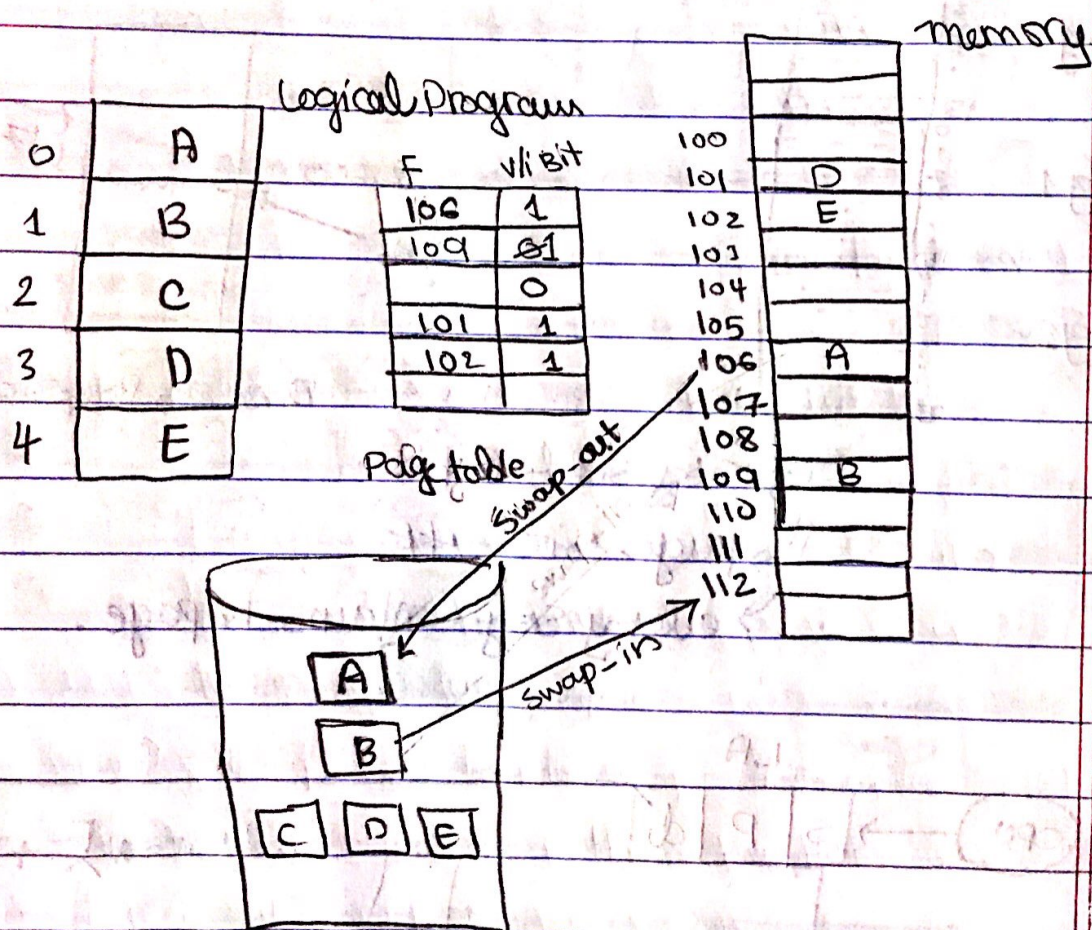 memory
Logical Program
0 A
1 B
2 C
3 D
4 E
F V/i Bit
106 1
109 01
0
101 1
102 1
Page table
100
101 D
102 E
103
104
105
106 A
107
108
109 B
110
111
112
Swap-out
Swap-in
A
B
C D E
CPU P d